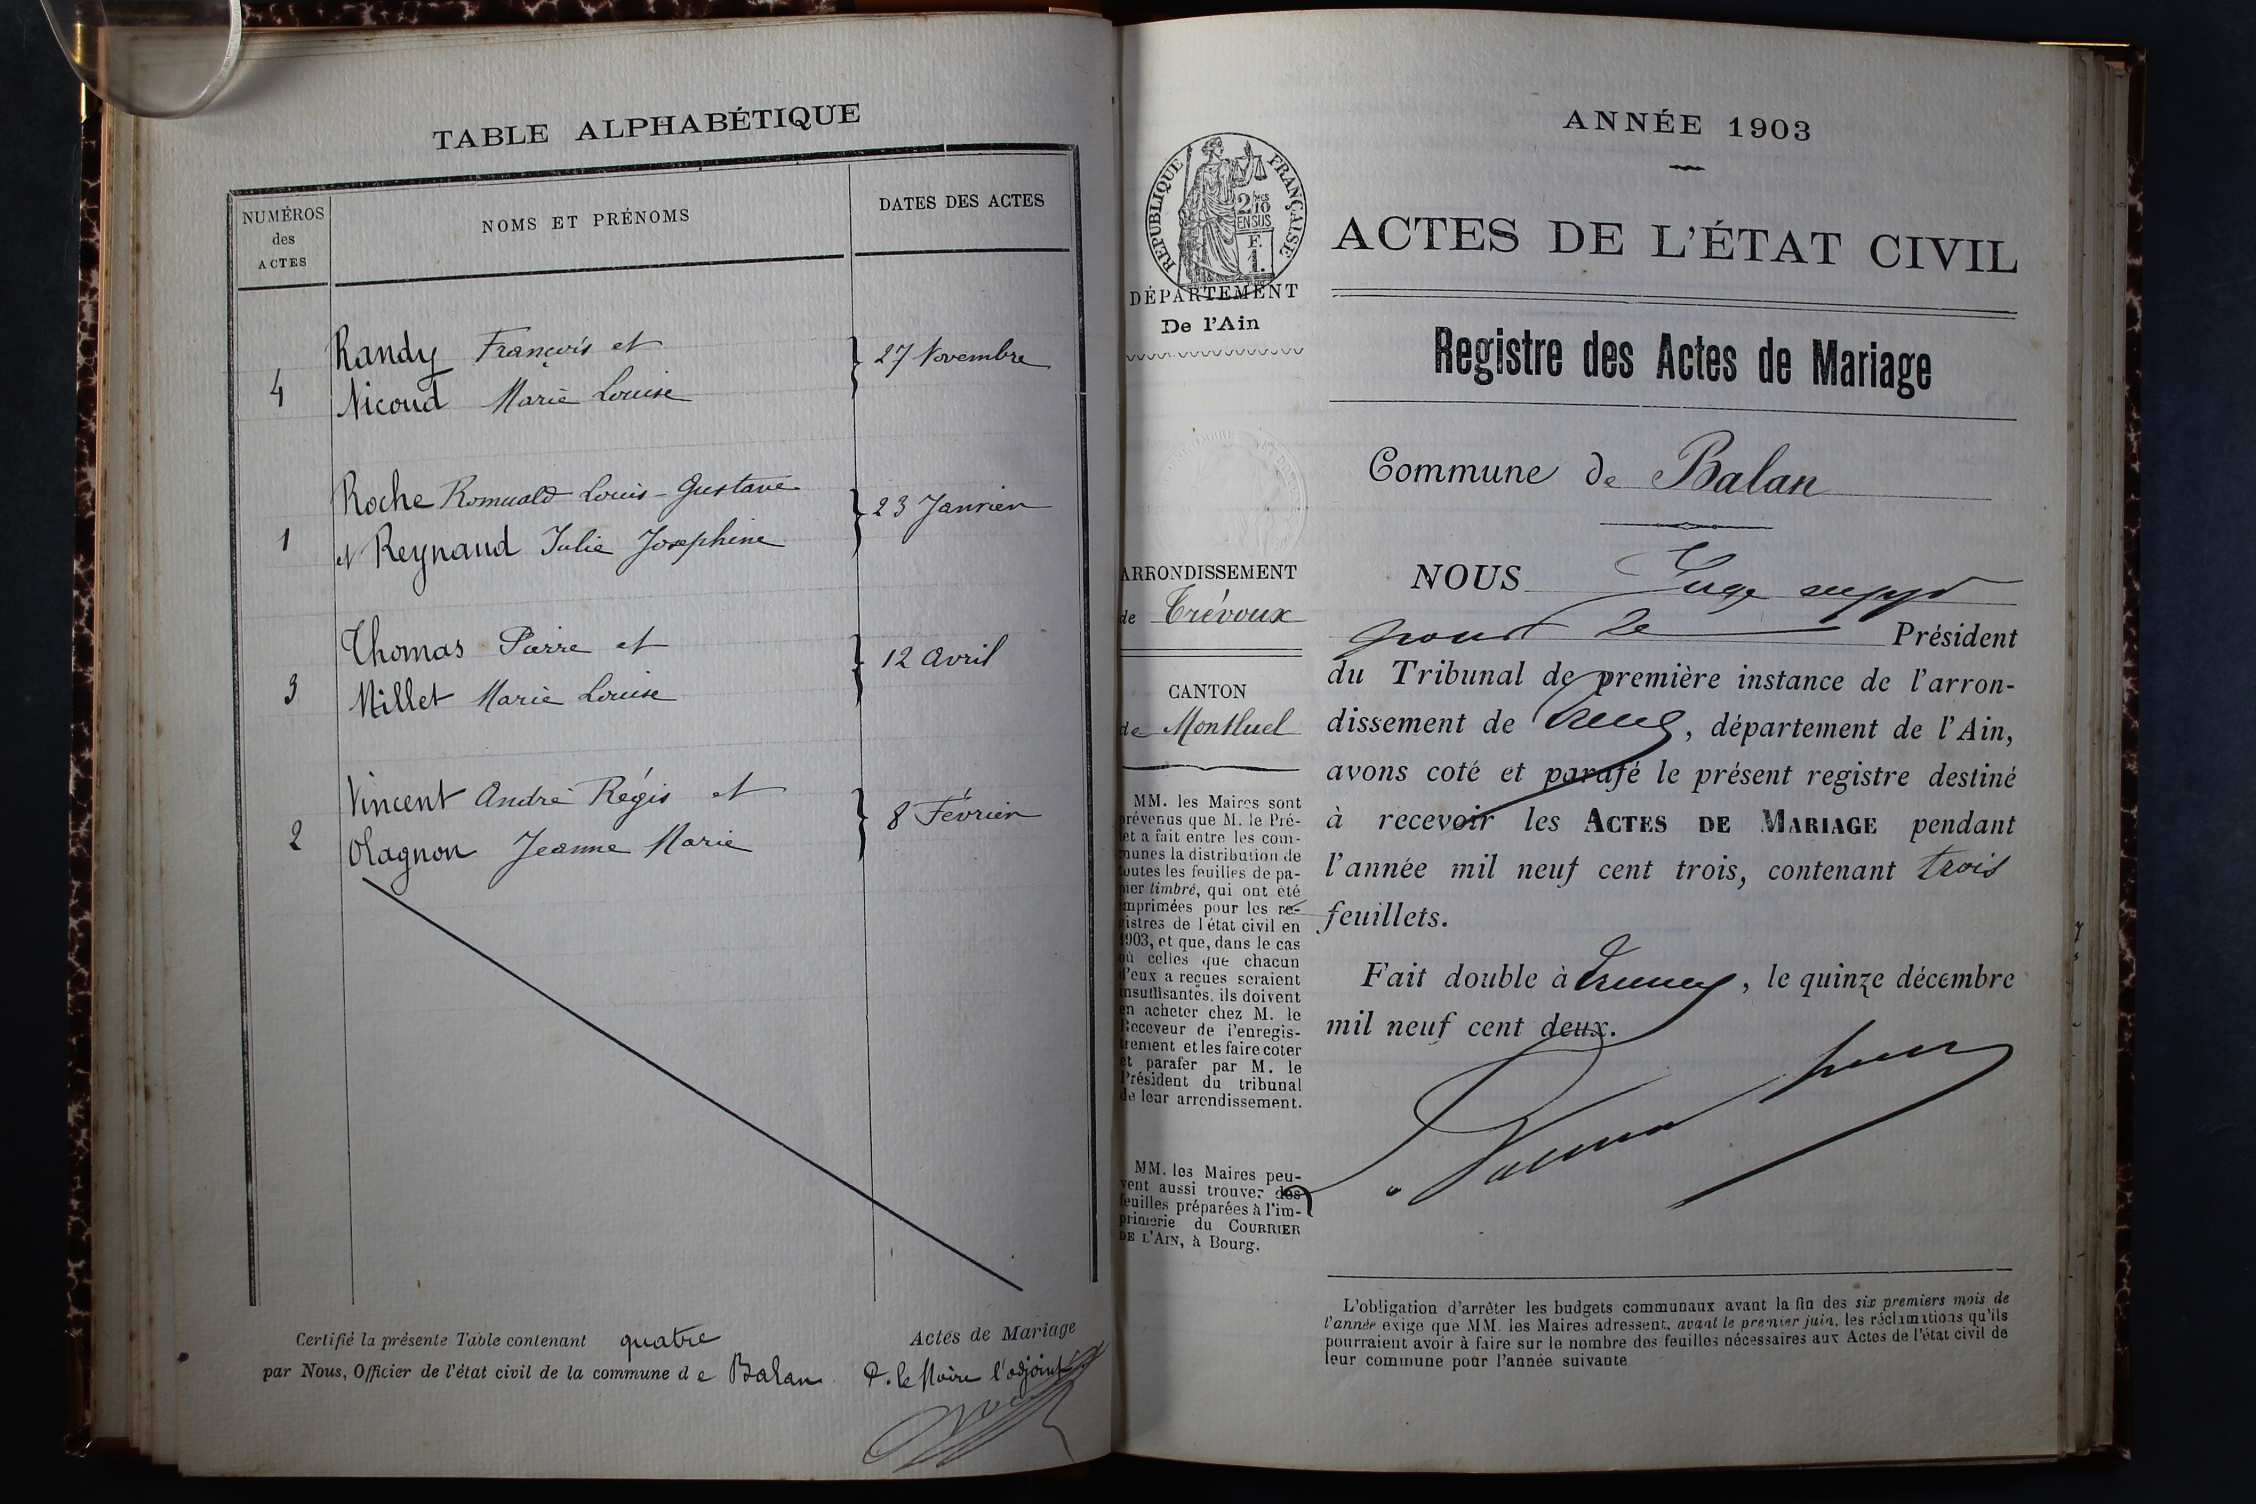 TABLE ALPHABÉTIQUE
NUMÉROS
des
ACTES
NOMS ET PRÉNOMS
DATES DES ACTES
Randy François et
4
27 Novembre
Nicoud Marie Louise
Roche Romuald Louis-Gustave
1
23 Janvier
et Reynaud Julie Josephine
Thomas Pierre et
3
12 Avril
Millet Marie Louise
Vincent André Régis et
2
8 Février
Olagnon Jeanne Marie
Certifié la présente Table contenant quatre Actes de Mariage
par Nous, Officier de l'état civil de la commune de Balan P. le Maire l'adjoint
ANNÉE 1903
RÉPUBLIQUE FRANÇAISE
2/10
EN SUS
F.
1.
DÉPARTEMENT
De l'Ain
ARRONDISSEMENT
de Trévoux
CANTON
de Montluel
MM. les Maires sont
prévenus que M. le Pré-
fet a fait entre les com-
munes la distribution de
toutes les feuilles de pa-
pier timbré, qui ont été
imprimées pour les re-
gistres de l'état civil en
1903, et que, dans le cas
où celles que chacun
d'eux a reçues seraient
insuffisantes, ils doivent
en acheter chez M. le
Receveur de l'enregis-
trement et les faire coter
et parafer par M. le
Président du tribunal
de leur arrondissement.
MM. les Maires peu-
vent aussi trouver des
feuilles préparées à l'im-
primerie du COURRIER
DE L'AIN, à Bourg.
ACTES DE L'ÉTAT CIVIL
Registre des Actes de Mariage
Commune de Balan
NOUS Juge suppt
pour le Président
du Tribunal de première instance de l'arron-
dissement de , département de l'Ain,
avons coté et parafé le présent registre destiné
à recevoir les ACTES DE MARIAGE pendant
l'année mil neuf cent trois, contenant trois
feuillets.
Fait double à , le quinze décembre
mil neuf cent deux.
L'obligation d'arrêter les budgets communaux avant la fin des six premiers mois de
l'année exige que MM. les Maires adressent, avant le premier juin, les réclamations qu'ils
pourraient avoir à faire sur le nombre des feuilles nécessaires aux Actes de l'état civil de
leur commune pour l'année suivante